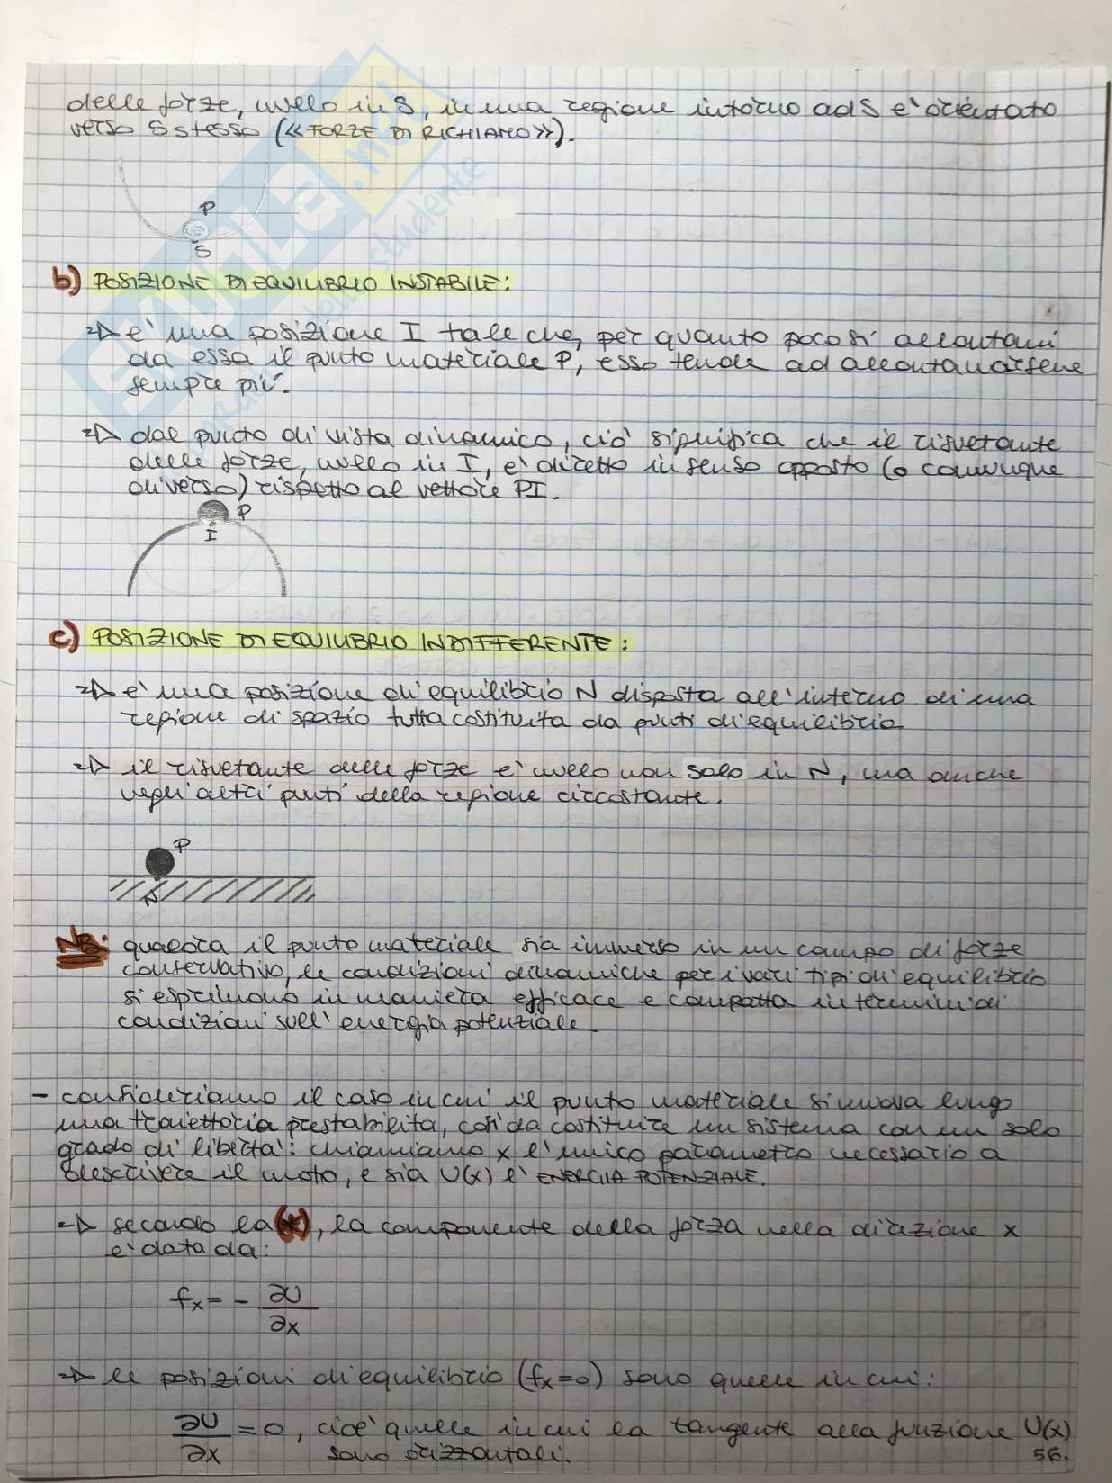 delle forze, nullo in S, in una regione intorno ad S e' orientato
verso S stesso (« FORZE DI RICHIAMO »).
P
S
b) POSIZIONE DI EQUILIBRIO INSTABILE:
=> e' una posizione I tale che, per quanto poco si allontani
da essa il punto materiale P, esso tende ad allontanarsene
sempre piu'.
=> dal punto di vista dinamico, cio' significa che il risultante
delle forze, nullo in I, e' diretto in senso opposto (o comunque
diverso) rispetto al vettore PI.
P
I
c) POSIZIONE DI EQUILIBRIO INDIFFERENTE:
=> e' una posizione di equilibrio N disposta all'interno di una
regione di spazio tutta costituita da punti di equilibrio
=> il risultante delle forze e' nullo non solo in N, ma anche
negli altri punti della regione circostante.
P
N
NB: qualora il punto materiale sia immerso in un campo di forze
conservativo, le condizioni dinamiche per i vari tipi di equilibrio
si esprimono in maniera efficace e compatta in termini di
condizioni sull'energia potenziale.
- consideriamo il caso in cui il punto materiale si muova lungo
una traiettoria prestabilita, cosi' da costituire un sistema con un solo
grado di liberta': chiamiamo x l'unico parametro necessario a
descrivere il moto, e sia U(x) l'ENERGIA POTENZIALE.
=> secondo la (*), la componente della forza nella direzione x
e' data da:
fx = - ∂U
∂x
=> le posizioni di equilibrio (fx=0) sono quelle in cui:
∂U = 0, cioe' quelle in cui la tangente alla funzione U(x)
∂x sono orizzontali.
56.
SKUOLA.net
studente